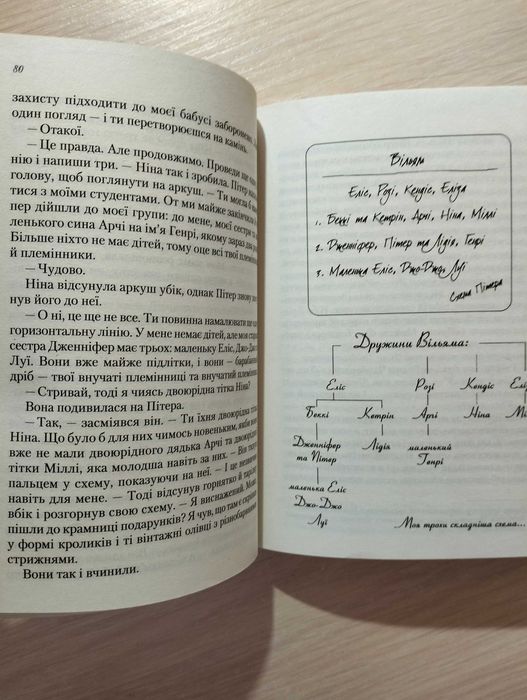 80
захисту підходити до моєї бабусі заборонено.
один погляд — і ти перетворюєшся на камінь.
— Отакої.
— Це правда. Але продовжимо. Проведи ще
нію і напиши три. — Ніна так і зробила. Пітер
голову, щоб поглянути на аркуш. — Ти могла б
тися з моїми студентами. От ми майже закінчили
пер дійшли до моєї групи: до мене, моєї сестри та
ленького сина Арчі на ім'я Генрі, якому зараз два
Більше ніхто не має дітей, тому оце всі твої племінниці
й племінники.
— Чудово.
Ніна відсунула аркуш убік, однак Пітер знову
нув його до неї.
— О ні, це ще не все. Ти повинна намалювати ще одну
горизонтальну лінію. У мене немає дітей, але моя старша
сестра Дженніфер має трьох: маленьку Еліс, Джо-Джо
Луї. Вони вже майже підлітки, і вони — барабанний
дріб — твої внучаті племінниці та внучатий племінник.
— Стривай, тоді я чиясь двоюрідна тітка Ніна?
Вона подивилася на Пітера.
— Так, — засміявся він. — Ти їхня двоюрідна тітка
Ніна. Що було б для них чимось новеньким, якби вони
вже не мали двоюрідного дядька Арчі та двоюрідної
тітки Міллі, яка молодша навіть за них. — Він
пальцем у схему, показуючи на неї. — І це
навіть для мене. — Тоді відсунув горнятко й тарілку
вбік і розгорнув свою схему. — Я виснажений. Може,
пішли до крамниці подарунків? Я чув, що там є
у формі кроликів і ті вінтажні олівці з різнобарвними
стрижнями.
Вони так і вчинили.
Вільям
Еліс, Розі, Кендіс, Еліза
1. Беккі та Кетрін, Арчі, Ніна, Міллі
2. Дженніфер, Пітер та Лідія, Генрі
3. Маленька Еліс, Джо-Джо, Луї
Схема Пітера
Дружини Вільяма:
Еліс Розі Кендіс
Беккі Кетрін Арчі Ніна
Дженніфер та Пітер Лідія маленький Генрі
маленька Еліс
Джо-Джо
Луї
Моя трохи складніша схема...